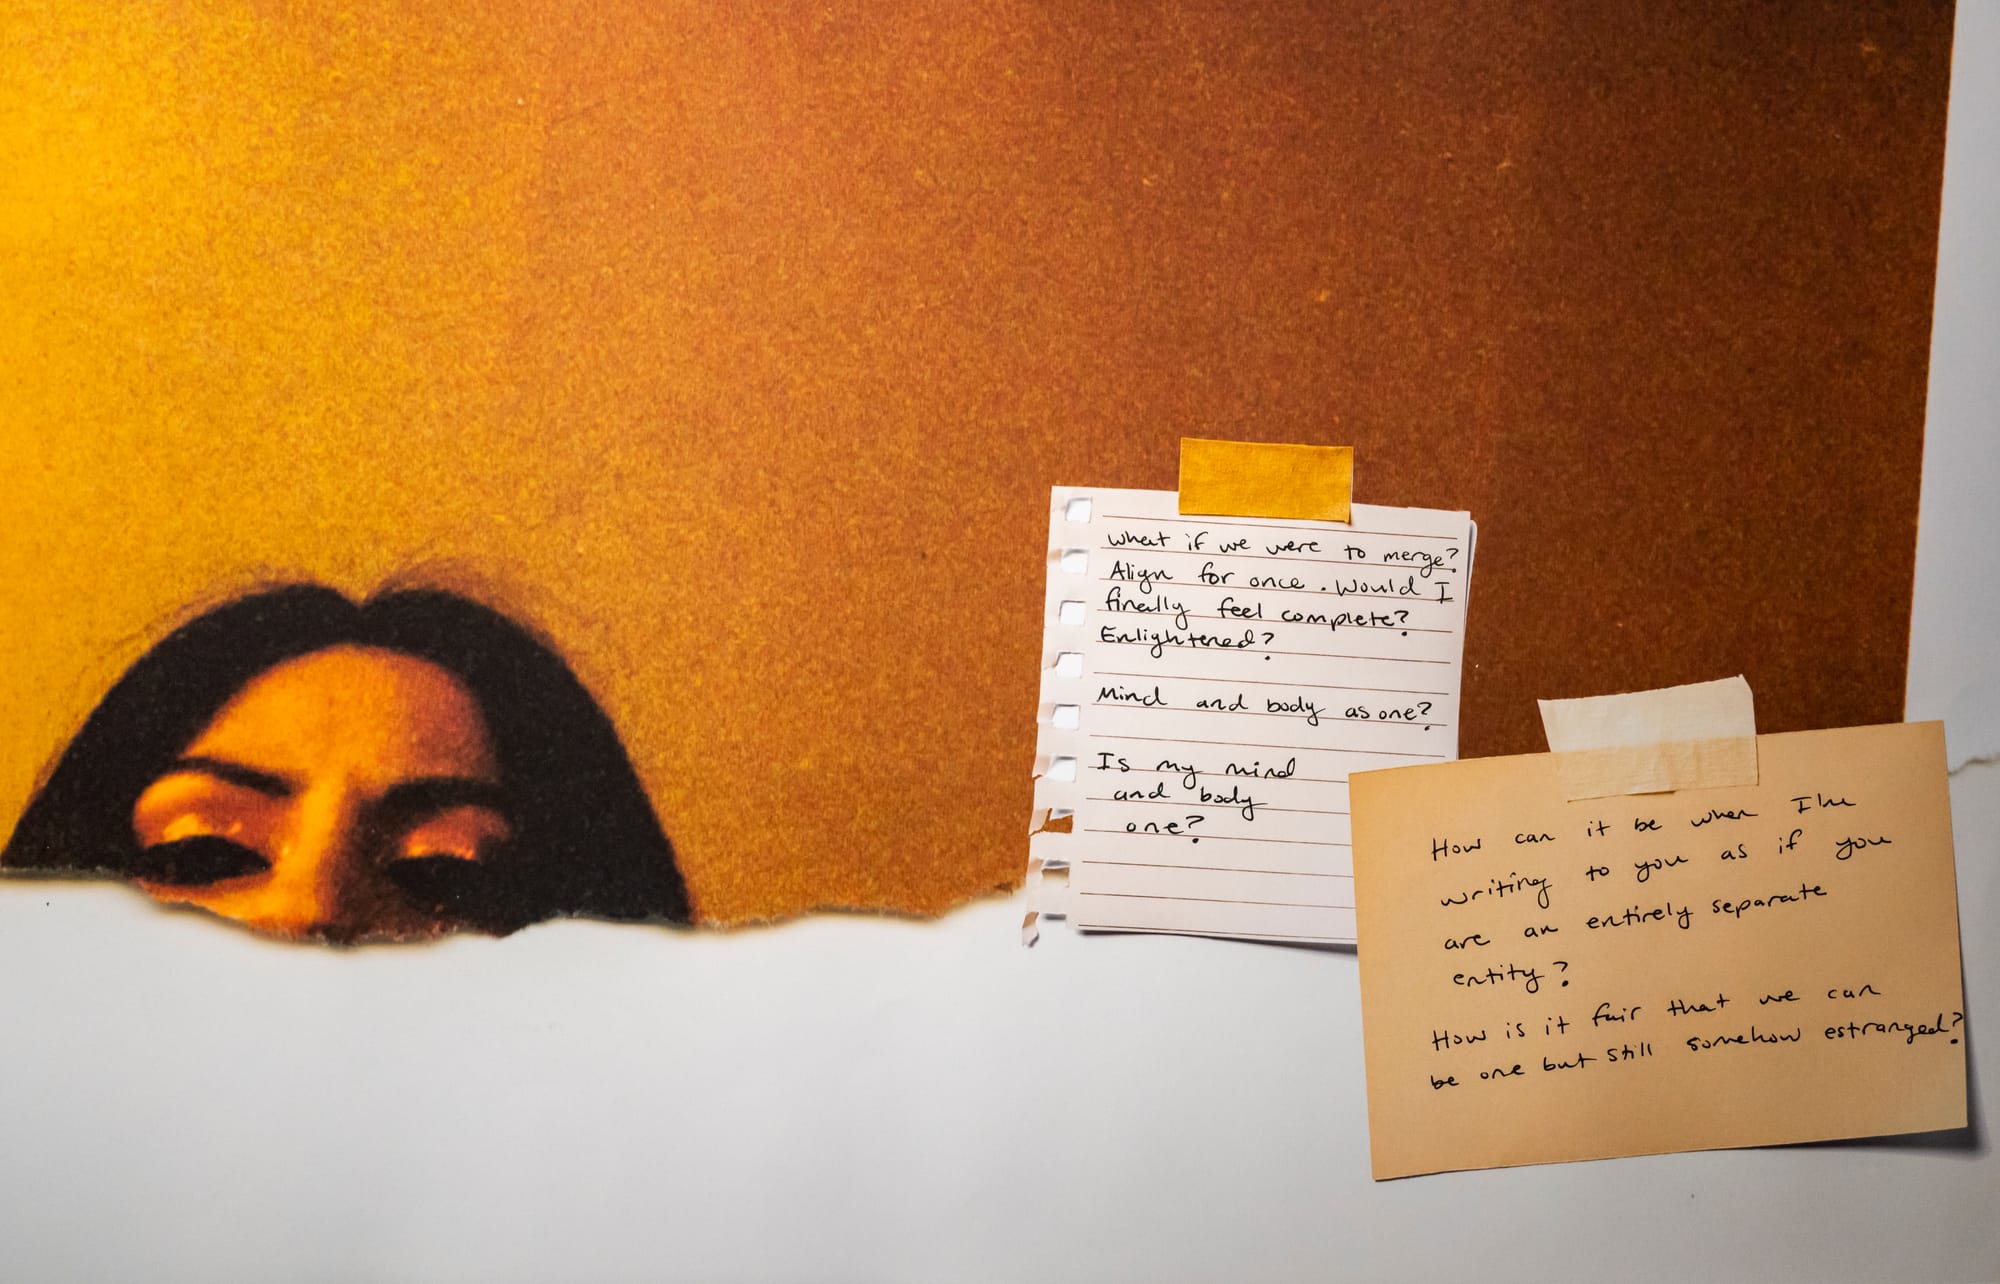 what if we were to merge?
Align for once. Would I
finally feel complete?
Enlightened?
Mind and body as one?
Is my mind
and body
one?
How can it be when I'm
writing to you as if you
are an entirely separate
entity?
How is it fair that we can
be one but still somehow estranged?